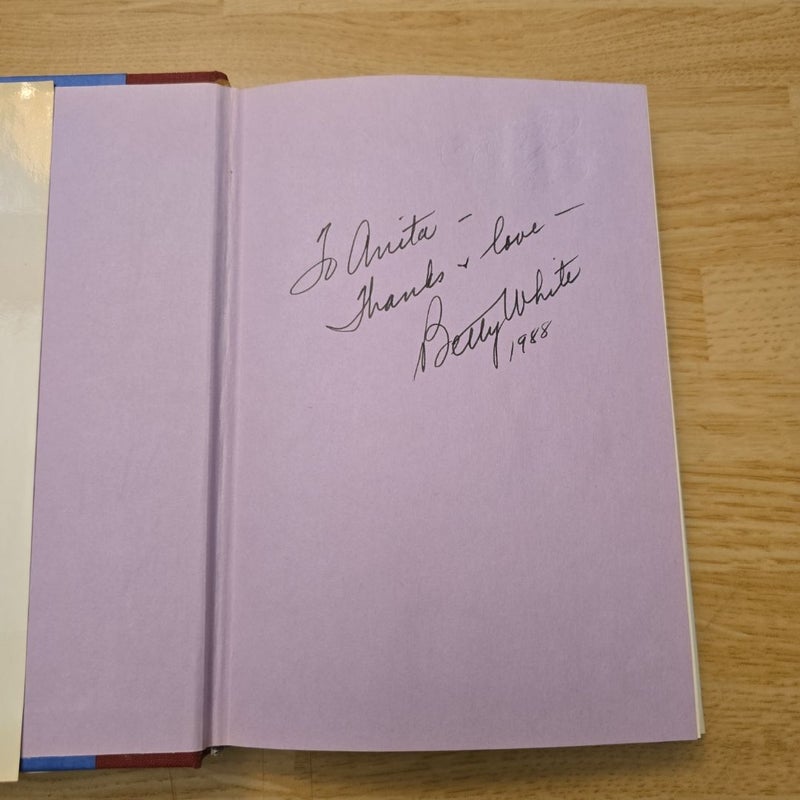 To Anita -
Thanks & love -
Betty White
1988